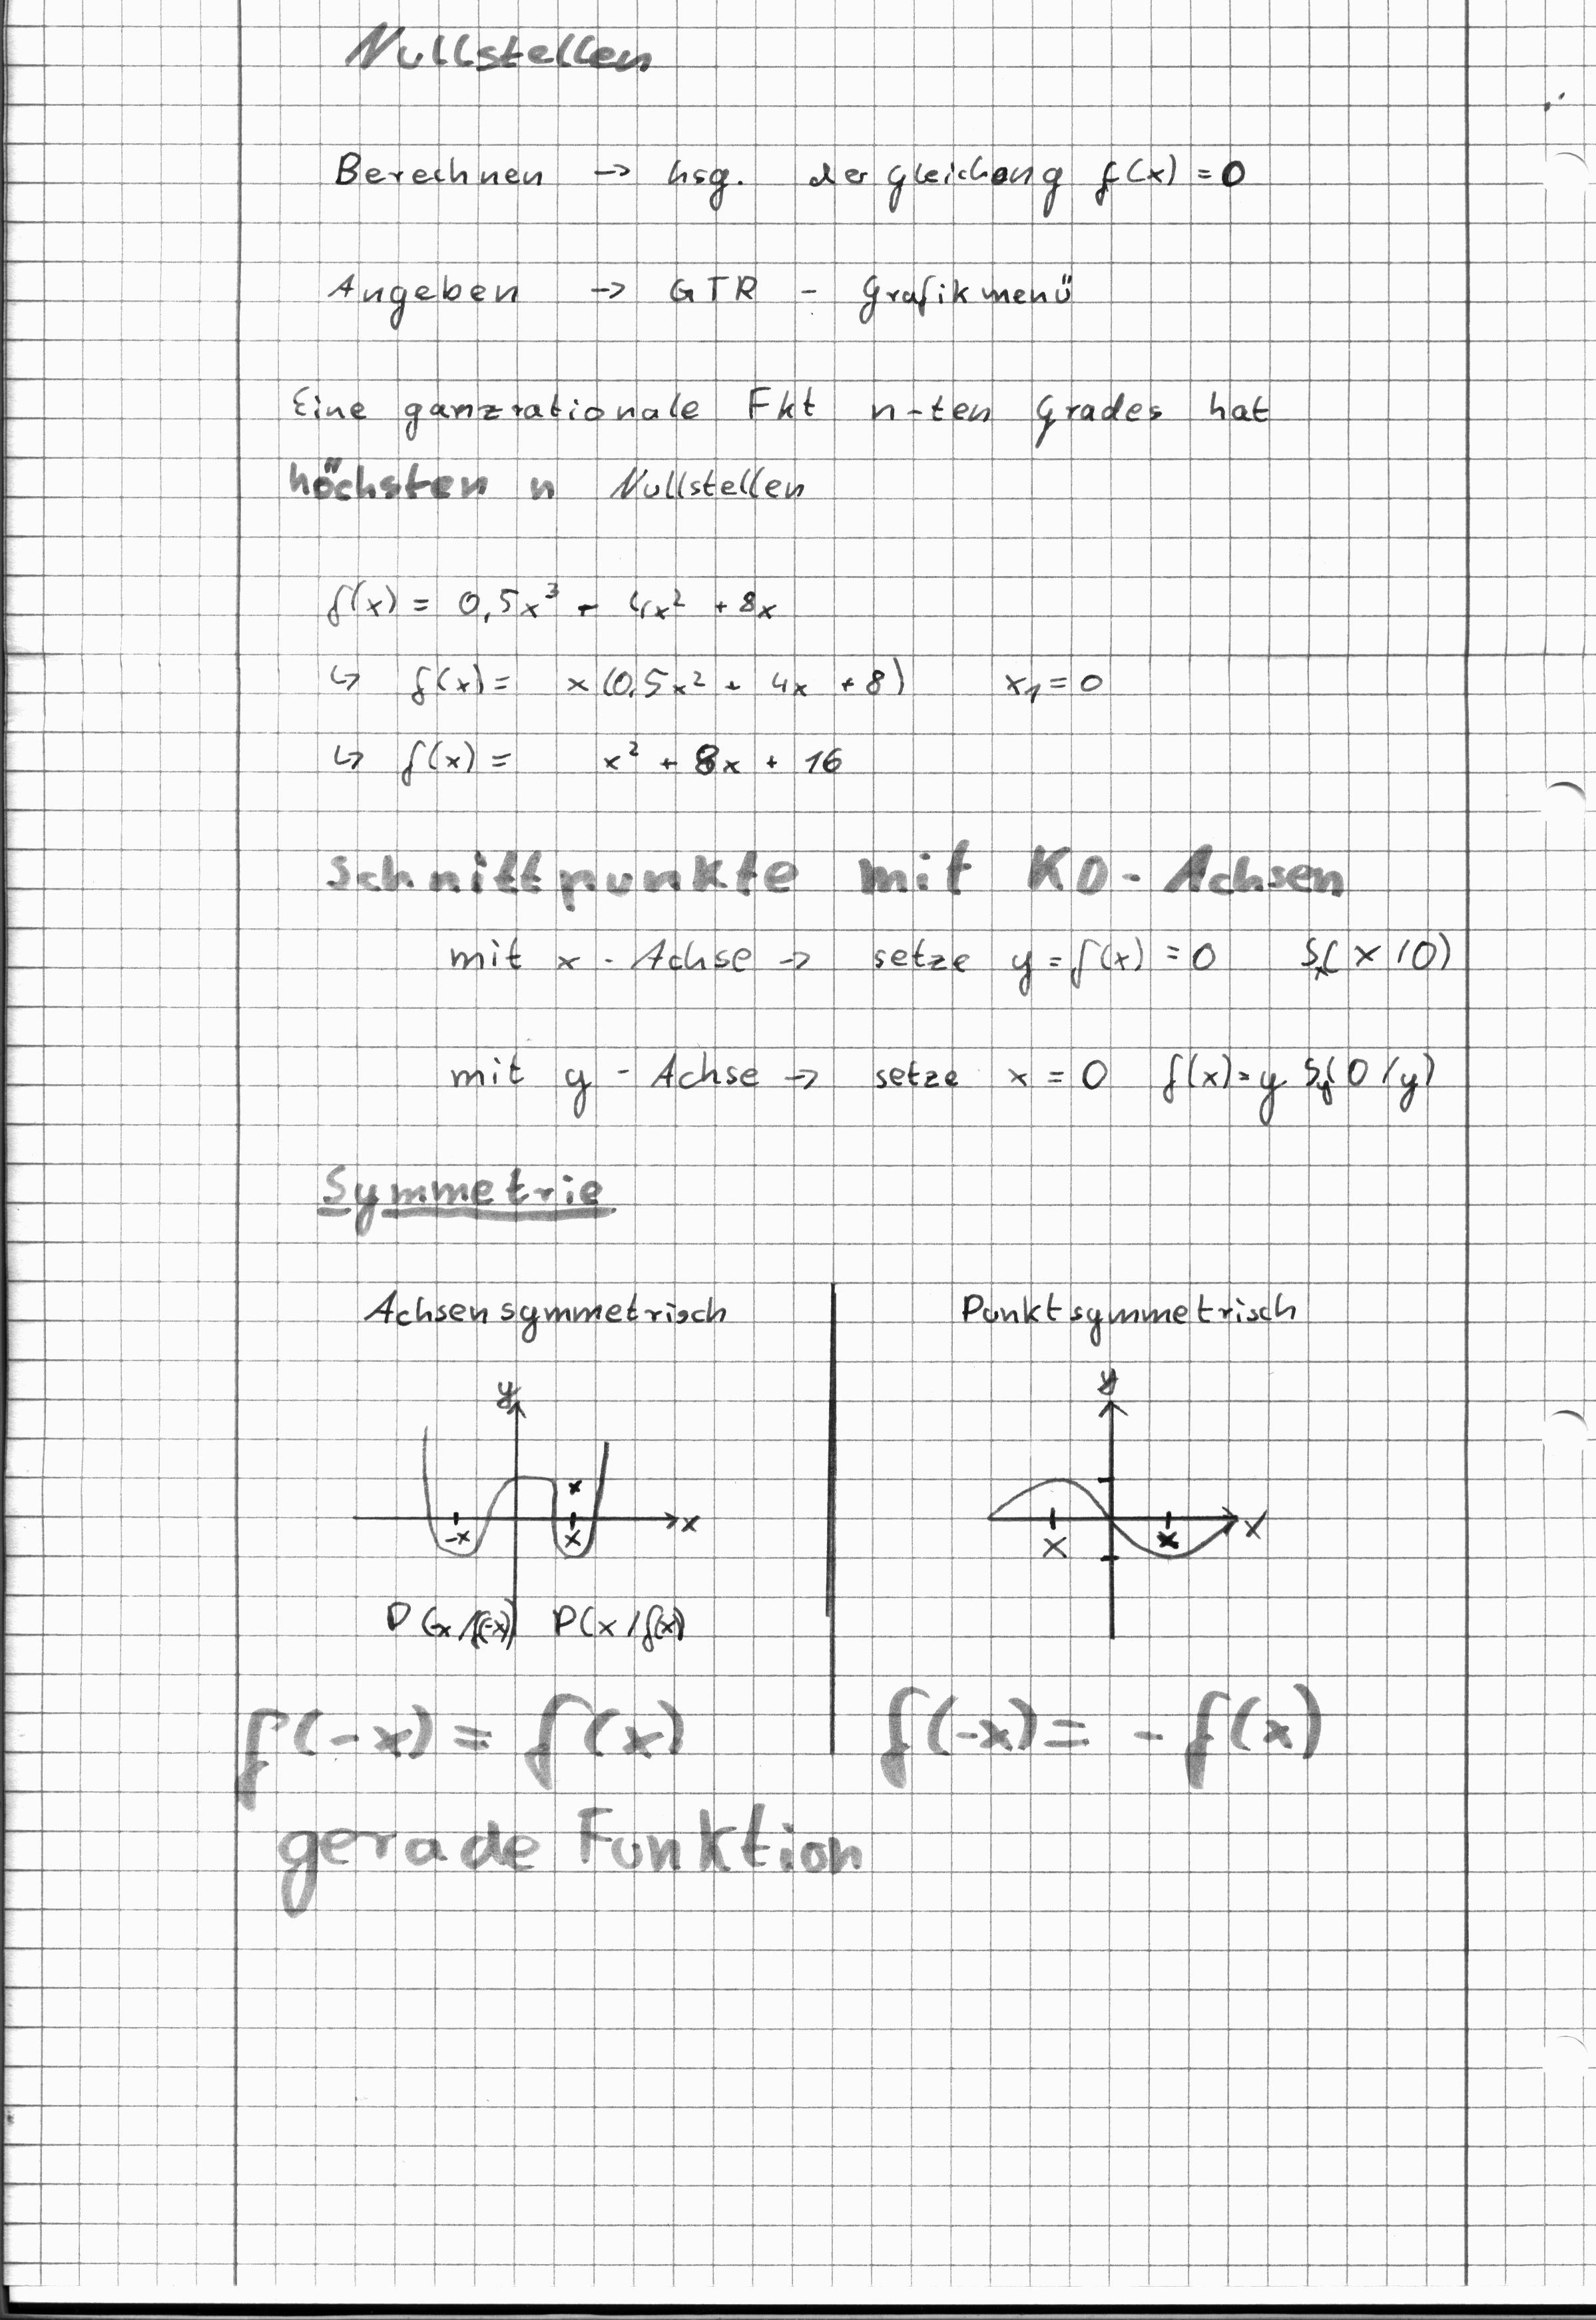 Nullstellen
Berechnen → Lsg. der Gleichung f(x) = 0
Angeben → GTR - Grafikmenü
Eine ganzrationale Fkt n-ten Grades hat
höchsten n Nullstellen
f(x) = 0,5x³ - 4x² + 8x
↳ f(x) = x(0,5x² + 4x + 8) x₁ = 0
↳ f(x) = x² + 8x + 16
Schnittpunkte mit KO-Achsen
mit x-Achse → setze y = f(x) = 0 Sₓ(x/0)
mit y-Achse → setze x = 0 f(x) = y Sy(0/y)
Symmetrie
Achsensymmetrisch
y
x
x
-x
x
P(-x/f(-x)) P(x/f(x)
f(-x) = f(x)
gerade Funktion
Punktsymmetrisch
y
x
x
x
f(-x) = -f(x)